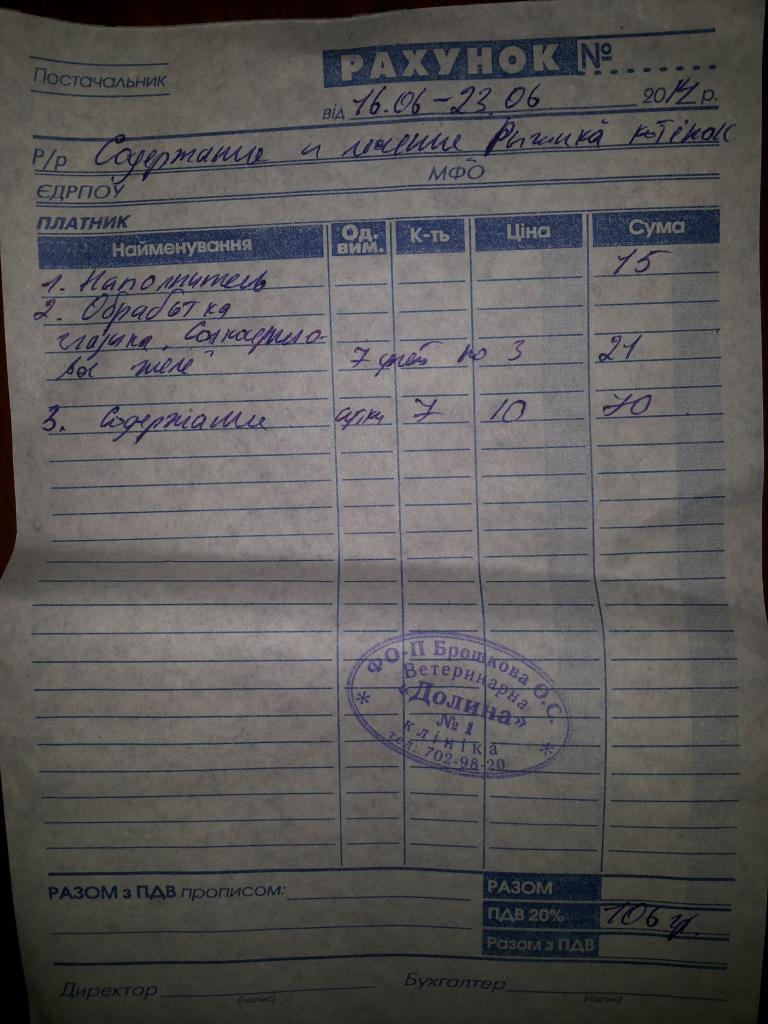 Постачальник
РАХУНОК №
від 16.06-23.06 2014 р.
Р/р Содержание и лечение Рыжика котёнок
ЄДРПОУ МФО
ПЛАТНИК
Найменування Од. вим. К-ть Ціна Сума
1. Наполнитель 15
2. Обработка
глазика "Солкосерило-
вое желе" 7 дней по 3 21
3. Содержание сутки 7 10 70
ФО-П Брошкова О.С.
Ветеринарна
«Долина»
№ 1
клініка
тел: 702-98-20
РАЗОМ з ПДВ прописом: РАЗОМ
ПДВ 20% 106 г.
Разом з ПДВ
Директор Бухгалтер
(підпис) (підпис)